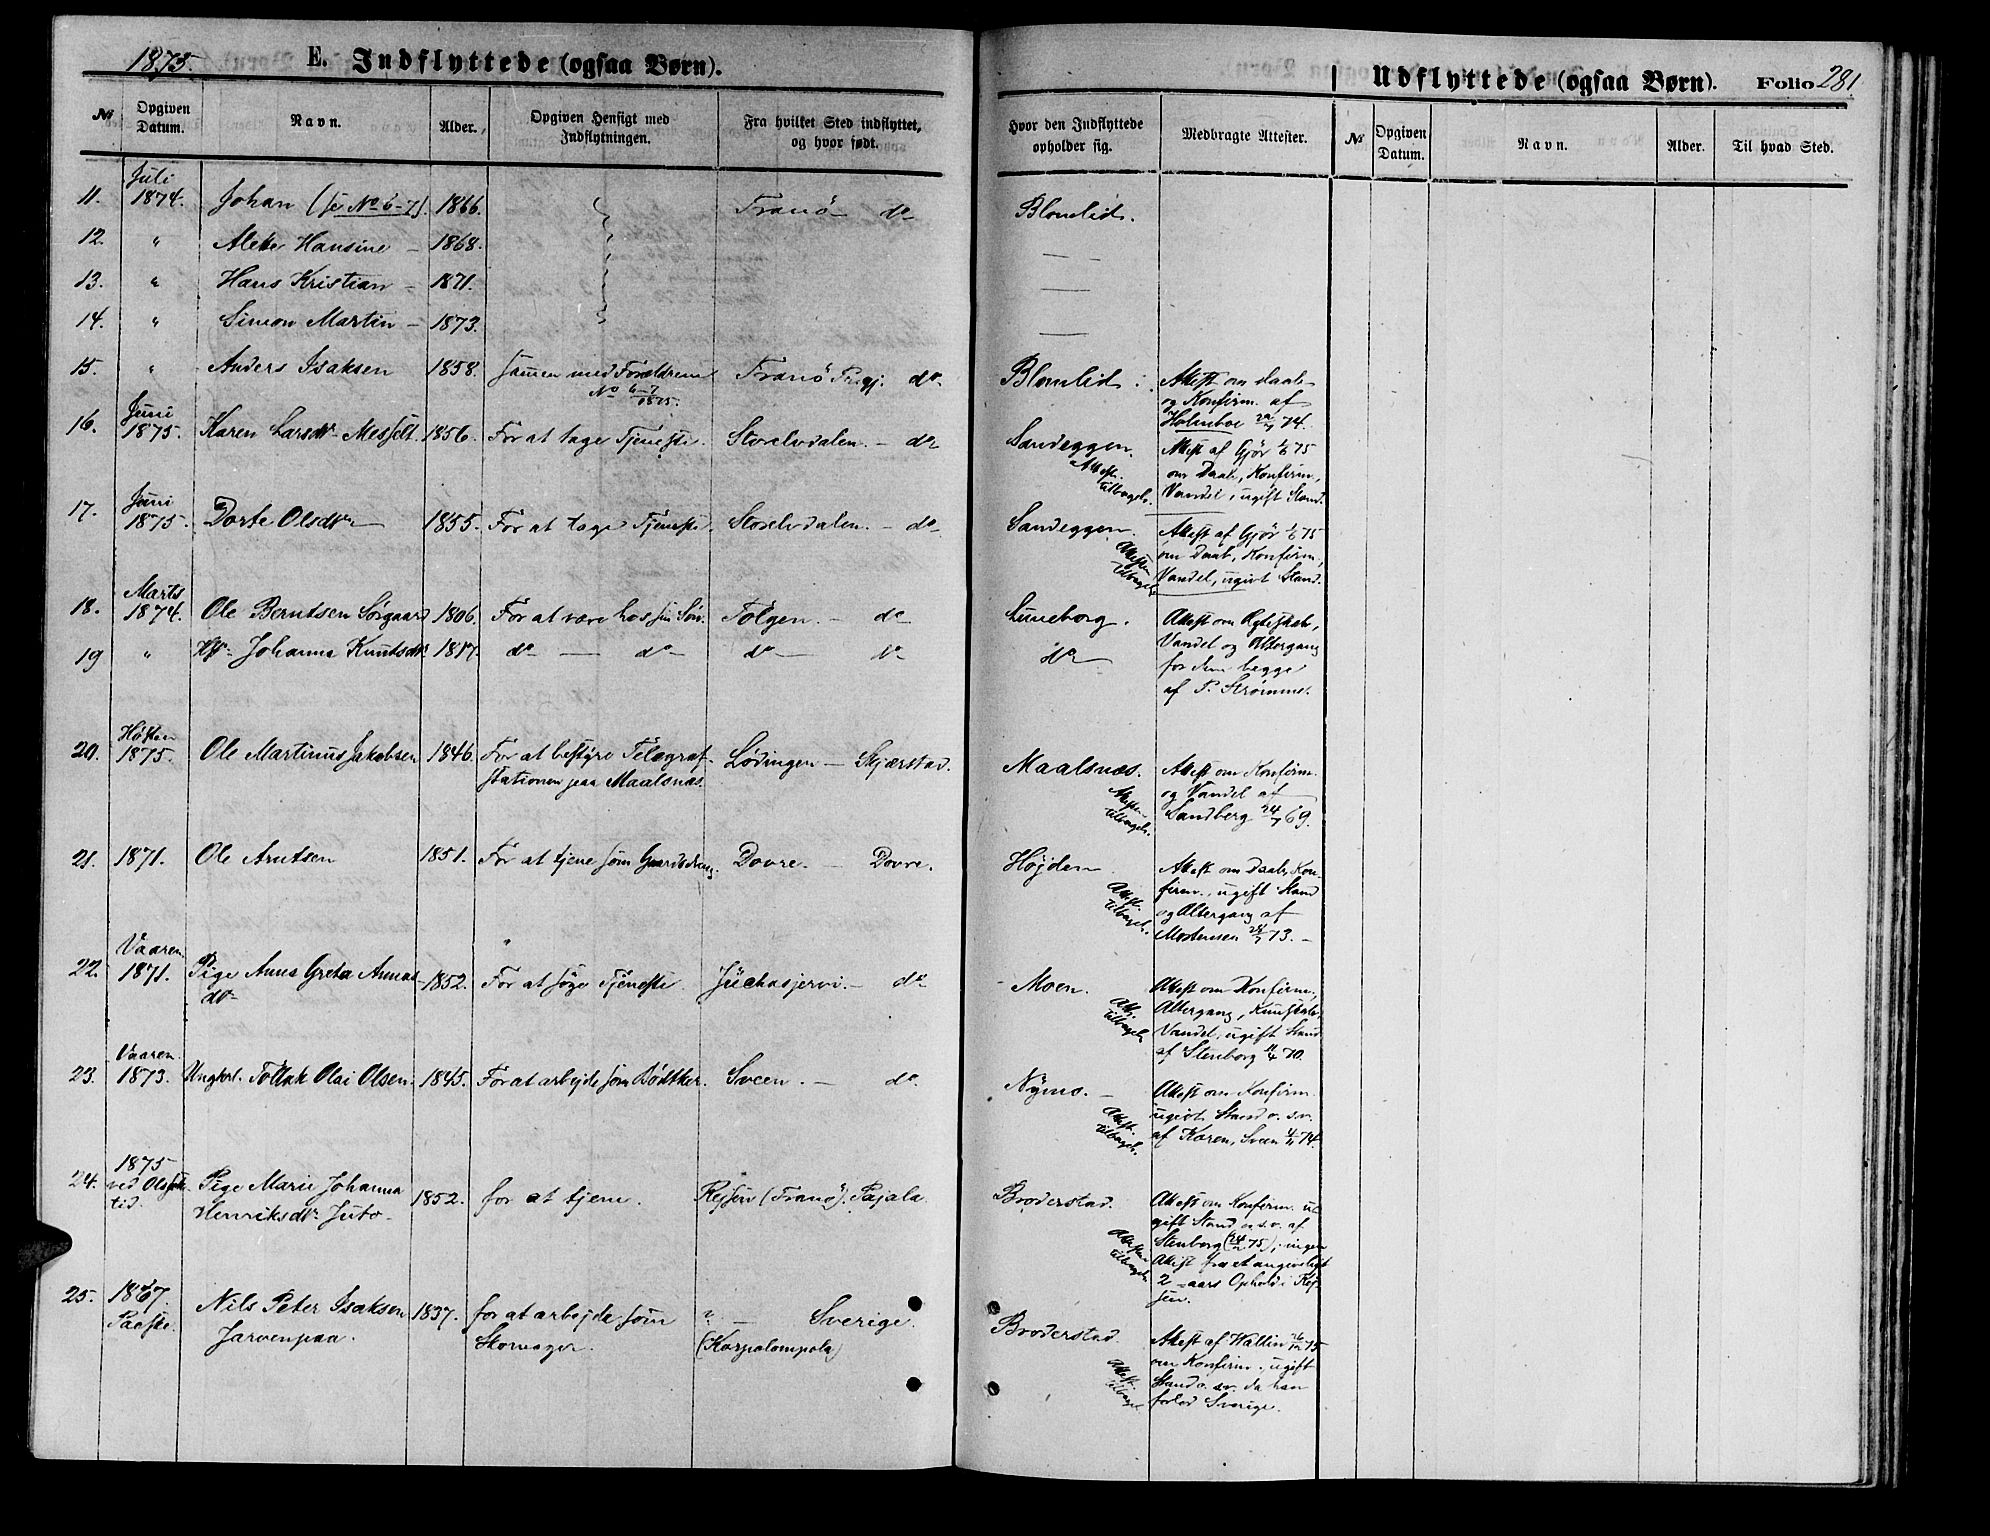 1875.
E. Indflyttede (ogsaa Børn).
Udflyttede (ogsaa Børn). Folio 281
№ Opgiven Datum. Navn. Alder. Opgiven Hensigt med Indflytningen. Fra hvilket Sted indflyttet, og hvor født. Hvor den Indflyttede opholder sig. Medbragte Attester. № Opgiven Datum. Navn. Alder. Til hvad Sted.
11. Juli 1874. Johan (se No 6-7). 1866. Tranö do Blomlid.
12. " Hansine 1868.
13. " Hans Kristian 1871.
14. " Simon Martin 1873.
15. " Anders Isaksen 1858. sammen med Forældrene Tranö Prgj. do Blomlid. Attest om Daab
No 6-7 1875. og Konfirm. af
Holmboe 74.
16. Juni 1875. Karen Larsdr Messelt 1856. For at tage Tjeneste. Storelvdalen. do Sandeggen. Attest af Gjør 75
Attest. tilbagelv. om Daab, Konfirm.,
Vandel, ugift Stand.
17. Juni 1875. Dorte Olsdr 1855. For at tage Tjeneste. Storelvdalen. do Sandeggen Attest af Gjør 75
Attesten tilbagelv. om Daab, Konfirm.,
Vandel, ugivt Stand.
18. Marts 1874. Ole Berntsen Sørgaard 1806. For at være hos sin Søn. Tolgen. do Luneborg. Attest om Ægteskab,
19 " Johanna Knutsdr 1817. do do do do do Vandel og Altergang
for dem begge
af P. Strømme.
20. Høsten 1875. Ole Martinus Jakobsen 1846. For at bestyre Telegraf- Lødingen Skjærstad. Maalsnæs. Attest om Konfirm.
stationen paa Maalsnæs. Attesten tilbagelv. og Vandel af
Sandberg 69.
21. 1871. Ole Arntsen 1851. For at tjene som Gaardsdreng. Dovre. Dovre. Højden Attest om Daab, Kon-
Attest. tilbagelv. firm., ugift Stand
og Altergang af
Mortensen 73.
22. Vaaren 1871. Pige Anna Greta 1852. For at søge Tjeneste. Juckasjervi. do Moen. Attest om Konfirm.,
dr Att. tilbagelv. Altergang, Kundskab,
Vandel, ugift Stand
af Stenborg 70.
23. Vaaren 1873. Ungkarl. Olai Olsen. 1845. For at arbejde som Bødtker. Sveen. do. Nymo. Attest om Konfirm.
Attest. tilbagelv. ugivt Stand o. s. v.
af Koren, Sveen 74.
24. 1875 ved Olsok tid. Pige Marie Johanna 1852. for at tjene. Rejsen (Tranö). Pajala. Broderstad. Attest om Konfirm. u-
Henriksdr Juto Attesten tilbagelv. gift Stand o. s. v. af
Stenborg (75), ingen
Attest fra et angiveligt
2-aars Ophold i Rej-
sen.
25. 1867. Paaske. Nils Peter Isaksen 1837. for at arbejde som ? Sverige. Broderstad. Attest af Wallin 75
Jarvenpaa. Skomager. (Korpolompola) Attest. tilbagelv. om Konfirm., ugift
Stand o. sv. da han
forlod Sverige.